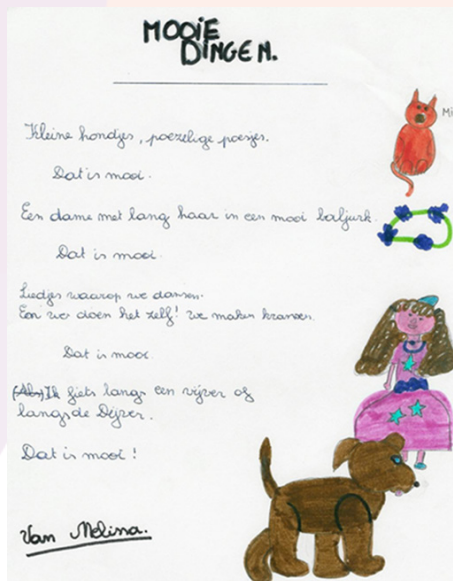 MOOIE
DINGEN.
Kleine hondjes, poezelige poesjes.
Dat is mooi.
Een dame met lang haar in een mooi baljurk.
Dat is mooi.
Liedjes waarop we dansen.
En we doen het zelf! We maken kransen.
Dat is mooi.
Ik fiets langs een vijver of
langs de Dijver.
Dat is mooi!
Van Melina.